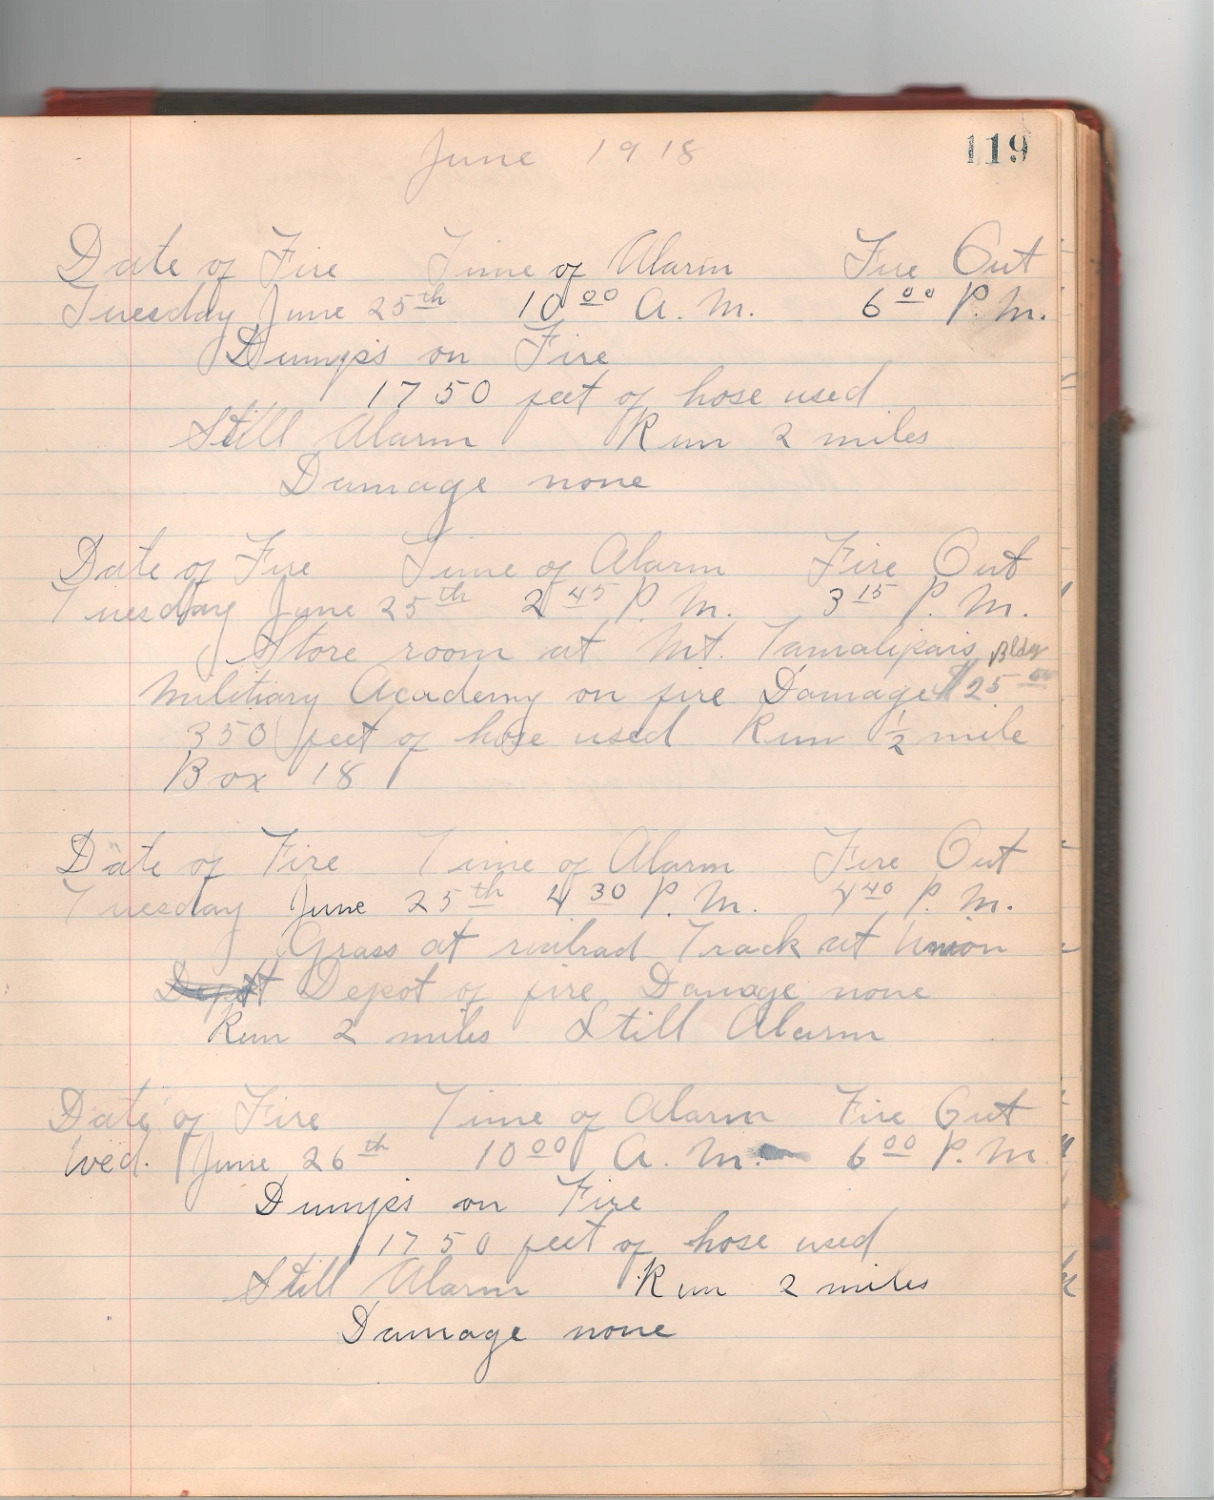 119
June 1918
Date of Fire Time of Alarm Fire Out
Tuesday June 25th 10 00 A. M. 6 00 P. M.
Dumps on Fire
1750 feet of hose used
Still Alarm Run 2 miles
Damage none
Date of Fire Time of Alarm Fire Out
Tuesday June 25th 2 45 P. M. 3 15 P. M.
Store room at Mt. Tamalipais Bldg
Militiary Academy on fire Damage $25 00
350 feet of hose used Run 1/2 mile
Box 18
Date of Fire Time of Alarm Fire Out
Tuesday June 25th 4 30 P. M. 4 40 P. M.
Grass at railrad Track at Union
Depot of fire Damage none
Run 2 miles Still Alarm
Date of Fire Time of Alarm Fire Out
Wed. June 26th 10 00 A. M. 6 00 P. M
Dumps on Fire
1750 feet of hose used
Still Alarm Run 2 miles
Damage none